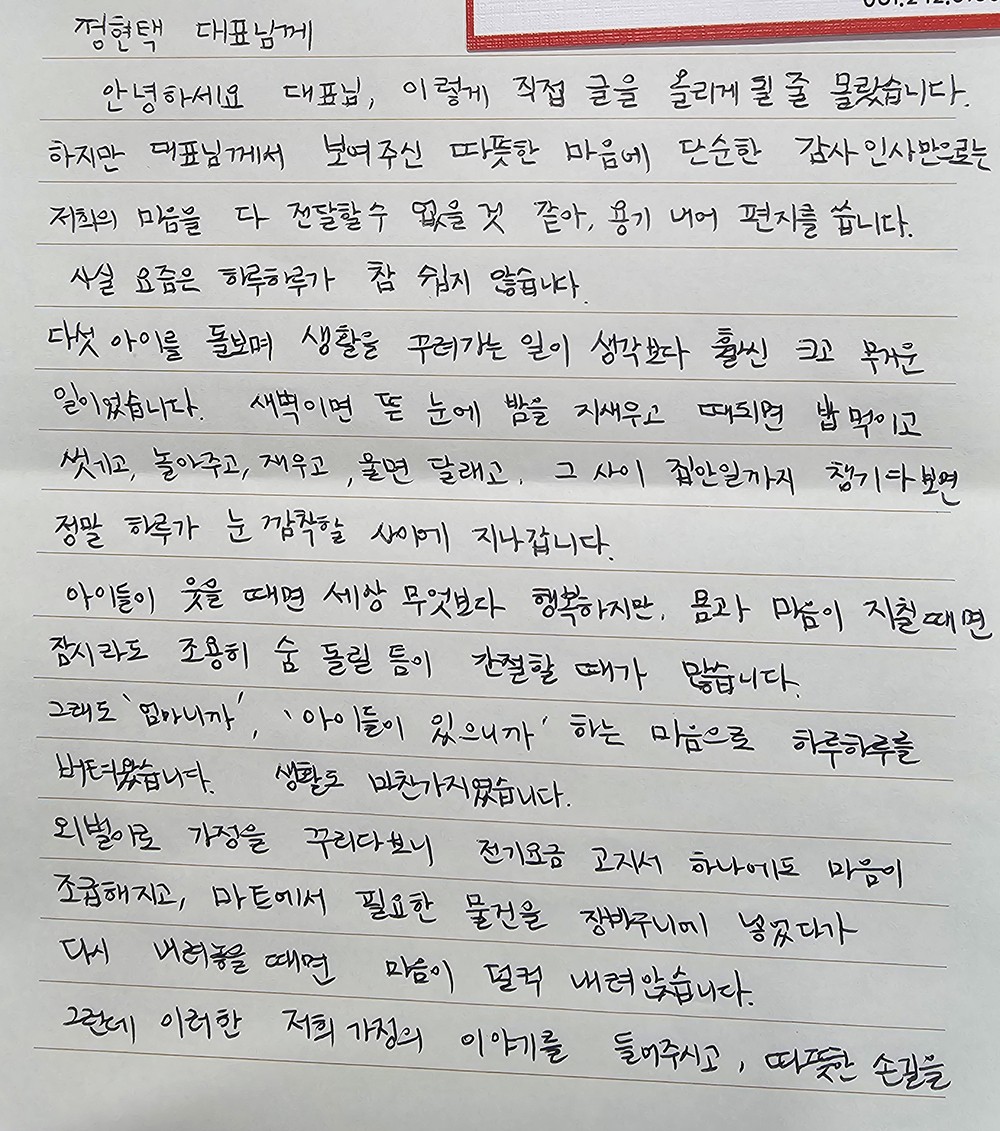 정현택 대표님께
안녕하세요 대표님, 이렇게 직접 글을 올리게 될 줄 몰랐습니다.
하지만 대표님께서 보여주신 따뜻한 마음에 단순한 감사 인사만으로는
저희의 마음을 다 전달할 수 없을 것 같아, 용기 내어 편지를 씁니다.
사실 요즘은 하루하루가 참 쉽지 않습니다.
다섯 아이를 돌보며 생활을 꾸려가는 일이 생각보다 훨씬 크고 무거운
일이었습니다. 새벽이면 뜬 눈에 밤을 지새우고 때되면 밥 먹이고
씻기고, 놀아주고, 재우고, 울면 달래고. 그 사이 집안일까지 챙기다보면
정말 하루가 눈 깜짝할 사이에 지나갑니다.
아이들이 웃을 때면 세상 무엇보다 행복하지만, 몸과 마음이 지칠때면
잠시라도 조용히 숨 돌릴 틈이 간절할 때가 많습니다.
그래도 '엄마니까', '아이들이 있으니까' 하는 마음으로 하루하루를
버텨왔습니다. 생활도 마찬가지였습니다.
외벌이로 가정을 꾸리다보니 전기요금 고지서 하나에도 마음이
조급해지고, 마트에서 필요한 물건을 장바구니에 넣었다가
다시 내려놓을 때면 마음이 덜컥 내려앉습니다.
그런데 이러한 저희 가정의 이야기를 들어주시고, 따뜻한 손길을